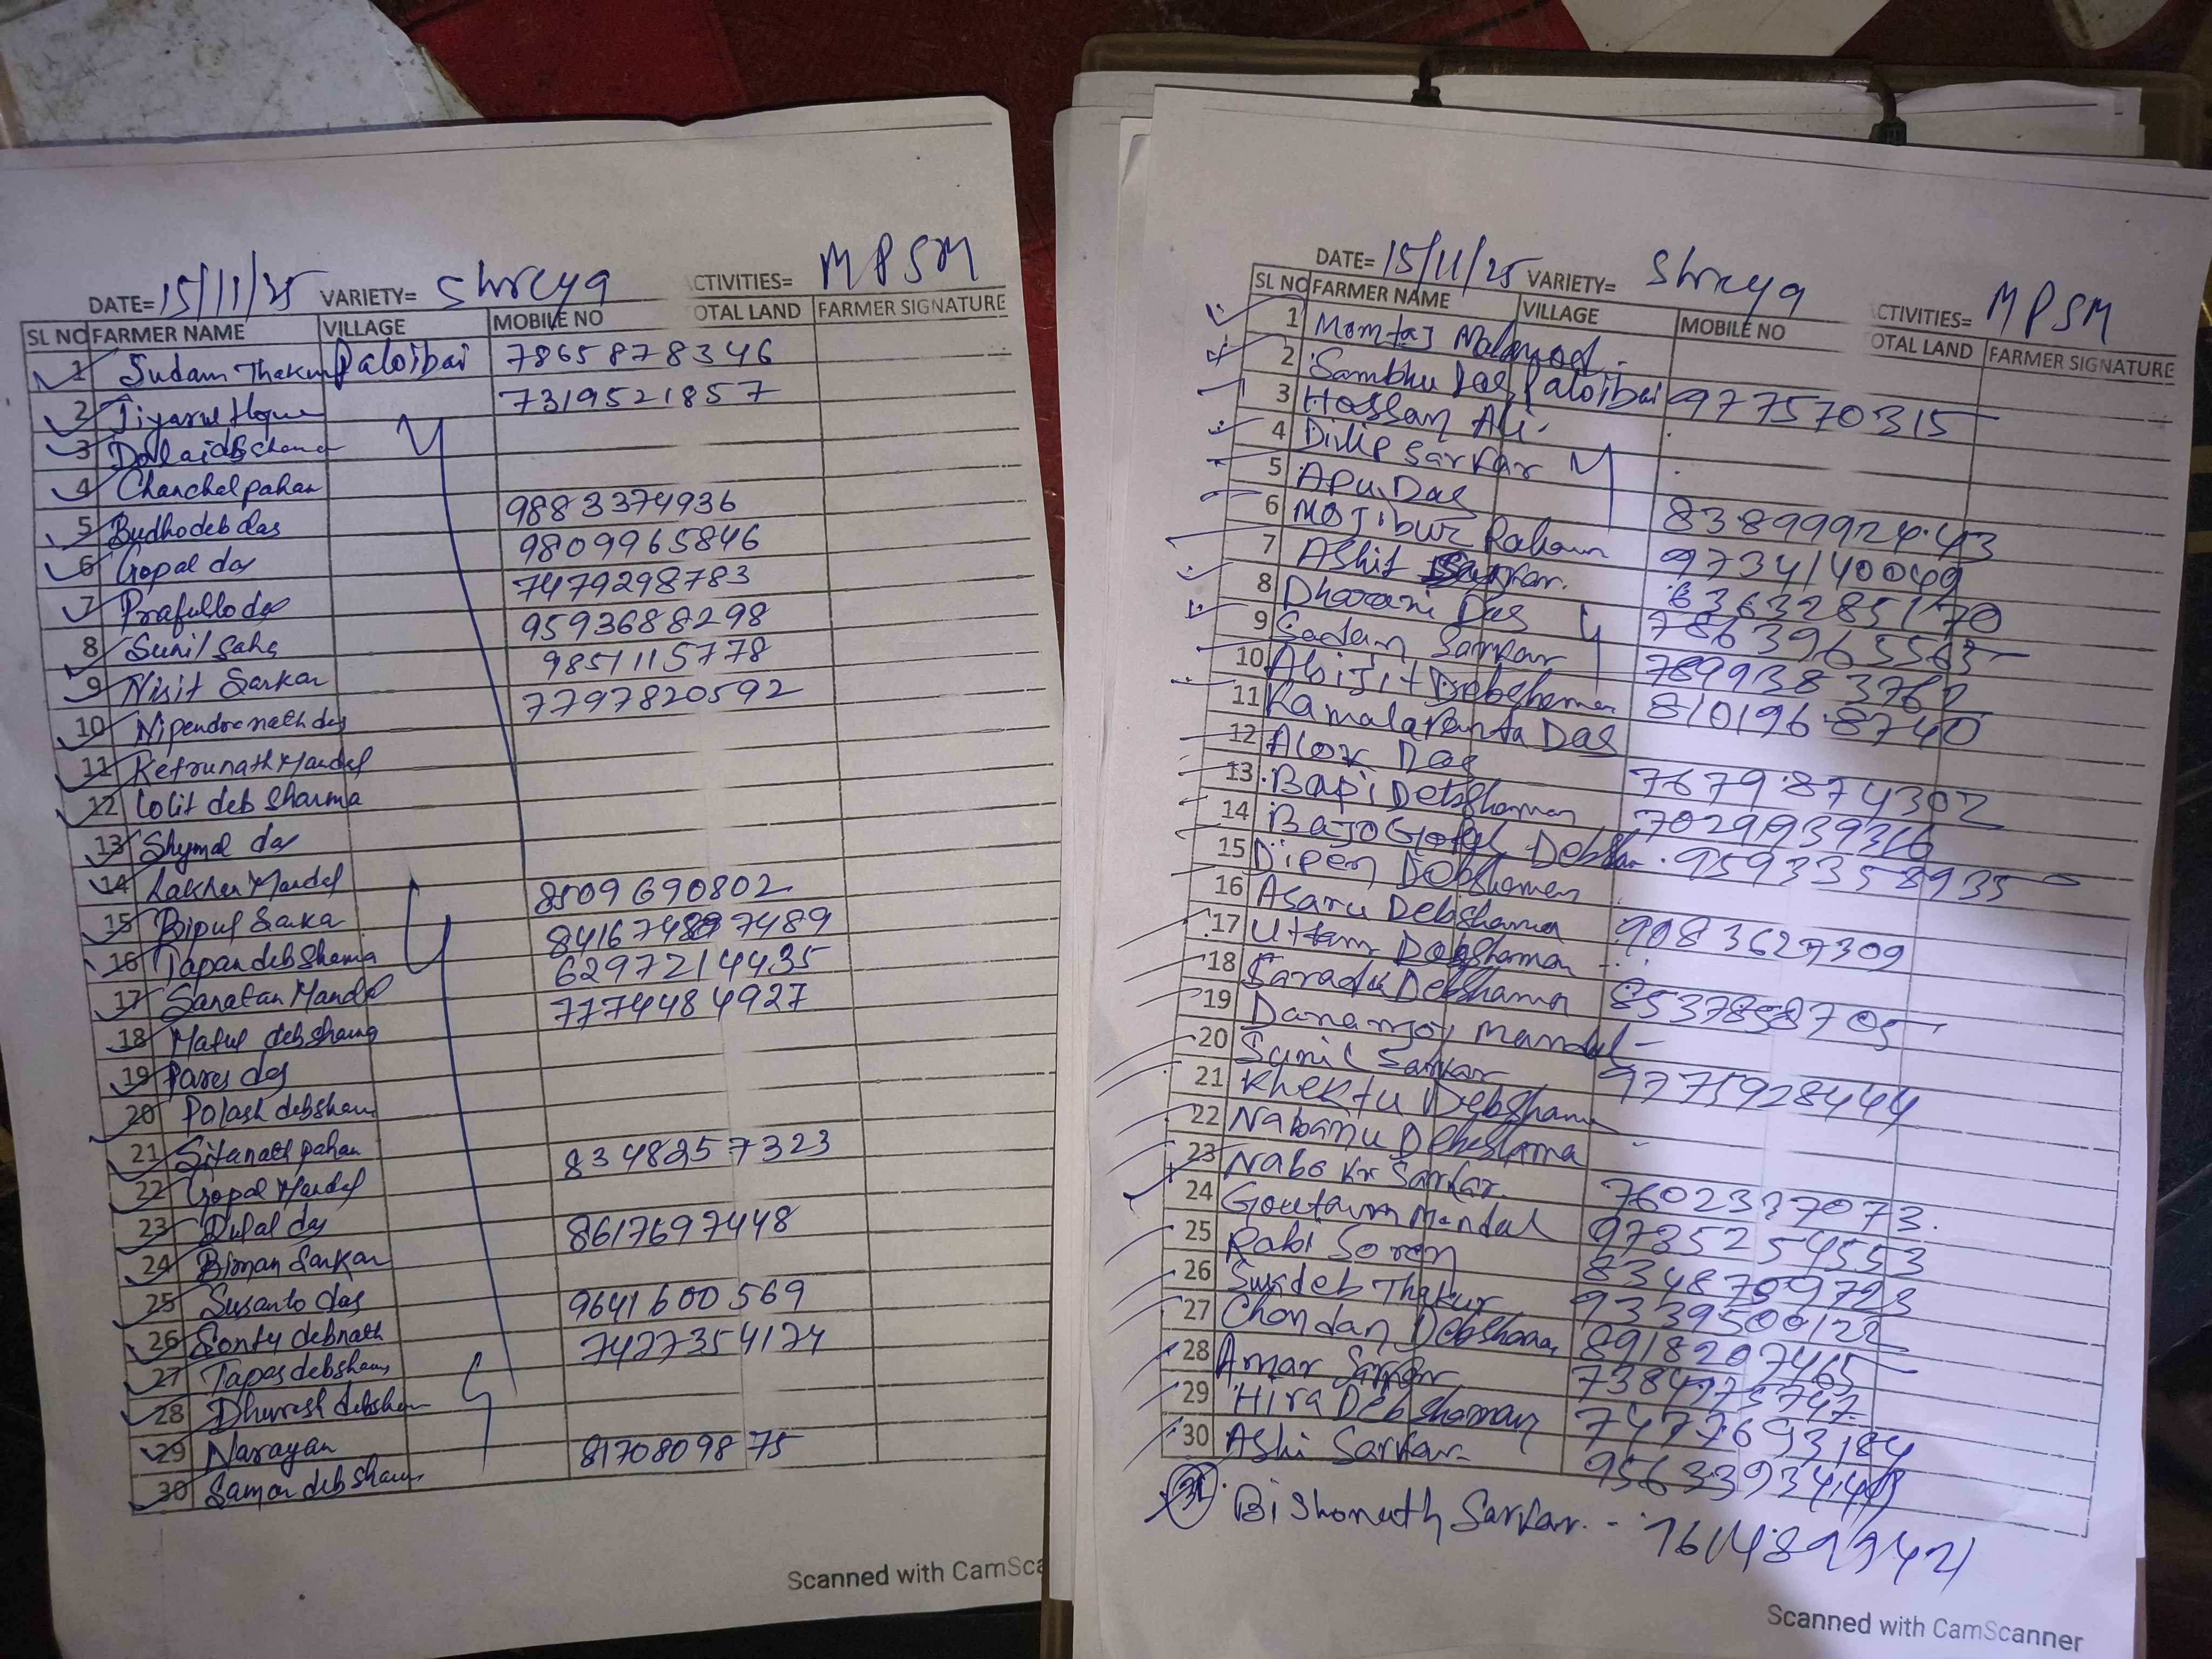 DATE= 15/11/25 VARIETY= Shreya ACTIVITIES= MPSM
SL NO FARMER NAME VILLAGE MOBILE NO OTAL LAND FARMER SIGNATURE
1 Sudam Thakur Paloibari 7865878346
2 Jiyarul Hoque 7319521857
3 debshama
4 Chanchal pahan
5 Budhodeb das 9883374936
6 Gopal das 9809965846
7 Prafullo das 7479298783
8 Sunil Saha 9593688298
9 Nisit Sarkar 9851115778
10 Nipendronath das 7797820592
11 Mandal
12 Lolit deb Sharma
13 Shymal das
14 Mandal
15 Bipul 8509690802
16 Tapan debshama 7489
17 Sanatan Mandal 6297214435
18 debshama 7774484927
19 Pares das
20 Polash debsham
21 Sitanath pahan
22 Gopal Mandal 8348257323
23 Dulal das
24 Biman Sarkar 8617697448
25 Susanto das
26 debnath 9641600569
27 Tapas debsham 7427354174
28 debsham
29 Narayan
30 Samar debsham 8170809875
Scanned with CamSca
DATE= 15/11/25 VARIETY= Shreya ACTIVITIES= MPSM
SL NO FARMER NAME VILLAGE MOBILE NO OTAL LAND FARMER SIGNATURE
1 Momtaj
2 Sambhu Das Paloibari 977570315
3 Hossan Ali
4 Dilip Sarkar
5 Apu Das 8389992443
6 Mojibur Rahaman 9734140049
7 Ashit Sarkar. 8363285170
8 Dharani Das 7863965563
9 Sadam Sarkar 7899383762
10 Abijit Debshaman 8101968740
11 Kamalakanta Das
12 Alok Das 7679874302
13 Bapi Debshaman 7029939316
14 Debsha 9593358935
15 Dipen Debshaman
16 Asaru Debshama 9083627309
17 Uttam Debshaman
18 Sarada Debshama 8537858705
19 Dananjoy Mandal
20 Sunil Sarkar 9775928444
21 Khektu Debshama
22 Nabanu Debshama
23 Nabo Kr Sarkar. 7602337073.
24 Goutam Mandal 9735254553
25 Rabi Soren 8348709723
26 Sukdeb Thakur 9339500122
27 Chandan Debshama 8918207465
28 Amar Sarkar 7384775747
29 Hira Debshaman 7477693184
30 Ashi Sarkar
31 Bishonath Sarkar. - 7614899421
Scanned with CamScanner